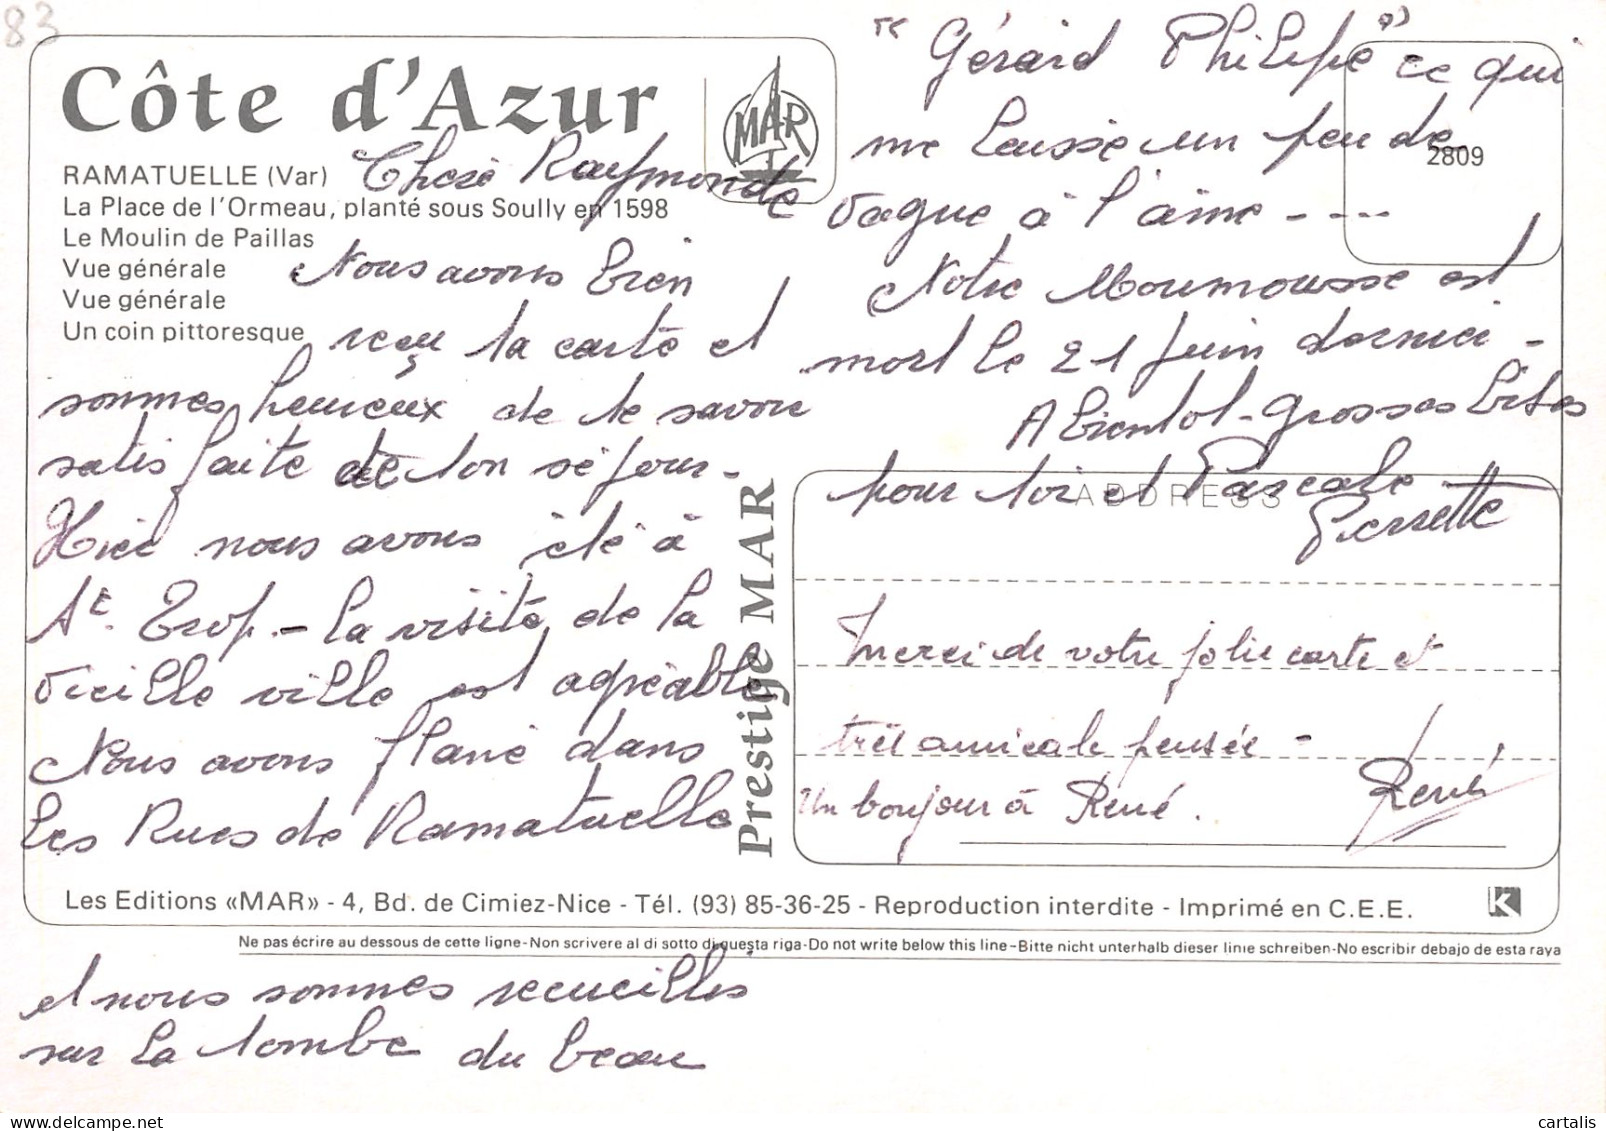 83
Côte d'Azur
MAR
RAMATUELLE (Var)
La Place de l'Ormeau, planté sous Soully en 1598
Le Moulin de Paillas
Vue générale
Vue générale
Un coin pittoresque
2809
Chère Raymonde
Nous avons bien
reçu la carte et
sommes heureux de te savoir
satisfaite de ton séjour -
Hier nous avons été à
St. Trop. - la visite de la
vieille ville est agréable
Nous avons flané dans
les Rues de Ramatuelle
et nous sommes recueilles
sur la tombe du beau
"Gérard Philipe" ce qui
me laisse un peu de
vague à l'ame - - - -
Notre Moumousse est
mort le 21 Juin dernier -
A bientot - grosses bises
pour toi et Pascale
Pierrette
ADDRESS
Merci de votre jolie carte et
très amicale pensée -
Un bonjour à René.
René
Prestige MAR
Les Editions «MAR» - 4, Bd. de Cimiez-Nice - Tél. (93) 85-36-25 - Reproduction interdite - Imprimé en C.E.E.
K
Ne pas écrire au dessous de cette ligne-Non scrivere al di sotto di questa riga-Do not write below this line-Bitte nicht unterhalb dieser linie schreiben-No escribir debajo de esta raya
cartalis